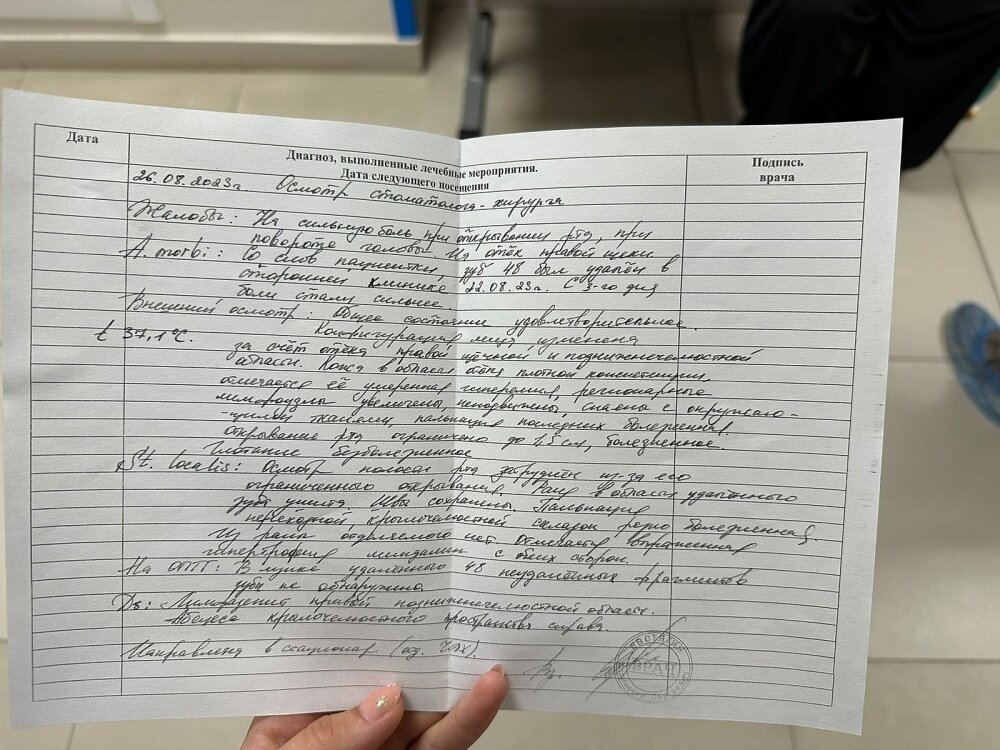 Дата
Диагноз, выполненные лечебные мероприятия.
Дата следующего посещения
Подпись
врача
26.08.2023г. Осмотр стоматолога-хирурга
Жалобы: На сильную боль при открывании рта, при
повороте головы. На отёк правой щеки.
A. morbi: Со слов пациентки, зуб 48 был удалён в
сторонней клинике 22.08.23г. С 3-го дня
боли стали сильнее.
Внешний осмотр: Общее состояние удовлетворительное.
t 37,1°C. Конфигурация лица изменена
за счёт отёка правой щёчной и поднижнечелюстной
области. Кожа в области отёка плотной консистенции,
отмечается её умеренная гиперемия, регионарные
лимфоузлы увеличены, неподвижны, спаяны с окружаю-
-щими тканями, пальпация последних болезненна!
Открывание рта ограничено до 1,5 см, болезненное.
Глотание безболезненное
St. localis: Осмотр полости рта затруднён из-за его
ограниченного открывания. Рана в области удалённого
зуба ушита. Швы сохранны. Пальпация
переходной, крылочелюстной складок резко болезненна!
Из раны отделяемого нет. Отмечается выраженная
гипертрофия миндалин с обеих сторон.
На ОПТГ: В лунке удалённого 48 неудалённых фрагментов
зуба не обнаружено.
Ds: Лимфаденит правой поднижнечелюстной области.
Абсцесс крылочелюстного пространства справа.
Направлена в стационар (отд. ЧЛХ).
ВРАЧ